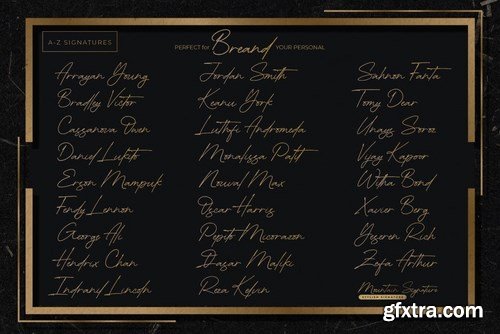 A-Z SIGNATURES
PERFECT for Breand YOUR PERSONAL
Arrayan Young
Bradley Victor
Cassanova Owen
Daniel Lukito
Erson Mampuk
Fendy Lennon
George Ali
Hendrix Chan
Indranil Lincoln
Jordan Smith
Keanu York
Luthfi Andromeda
Monalissa Patit
Nouval Max
Oscar Harris
Pepito Micorazon
Qasar Maliki
Reza Kelvin
Sahnon Fanta
Tomy Dear
Unays Soroz
Vijay Kapoor
Witha Bond
Xavier Berg
Yeseren Rich
Zefa Arthur
Mountain Signature
STYLISH SIGNATURE
gfxtra.com